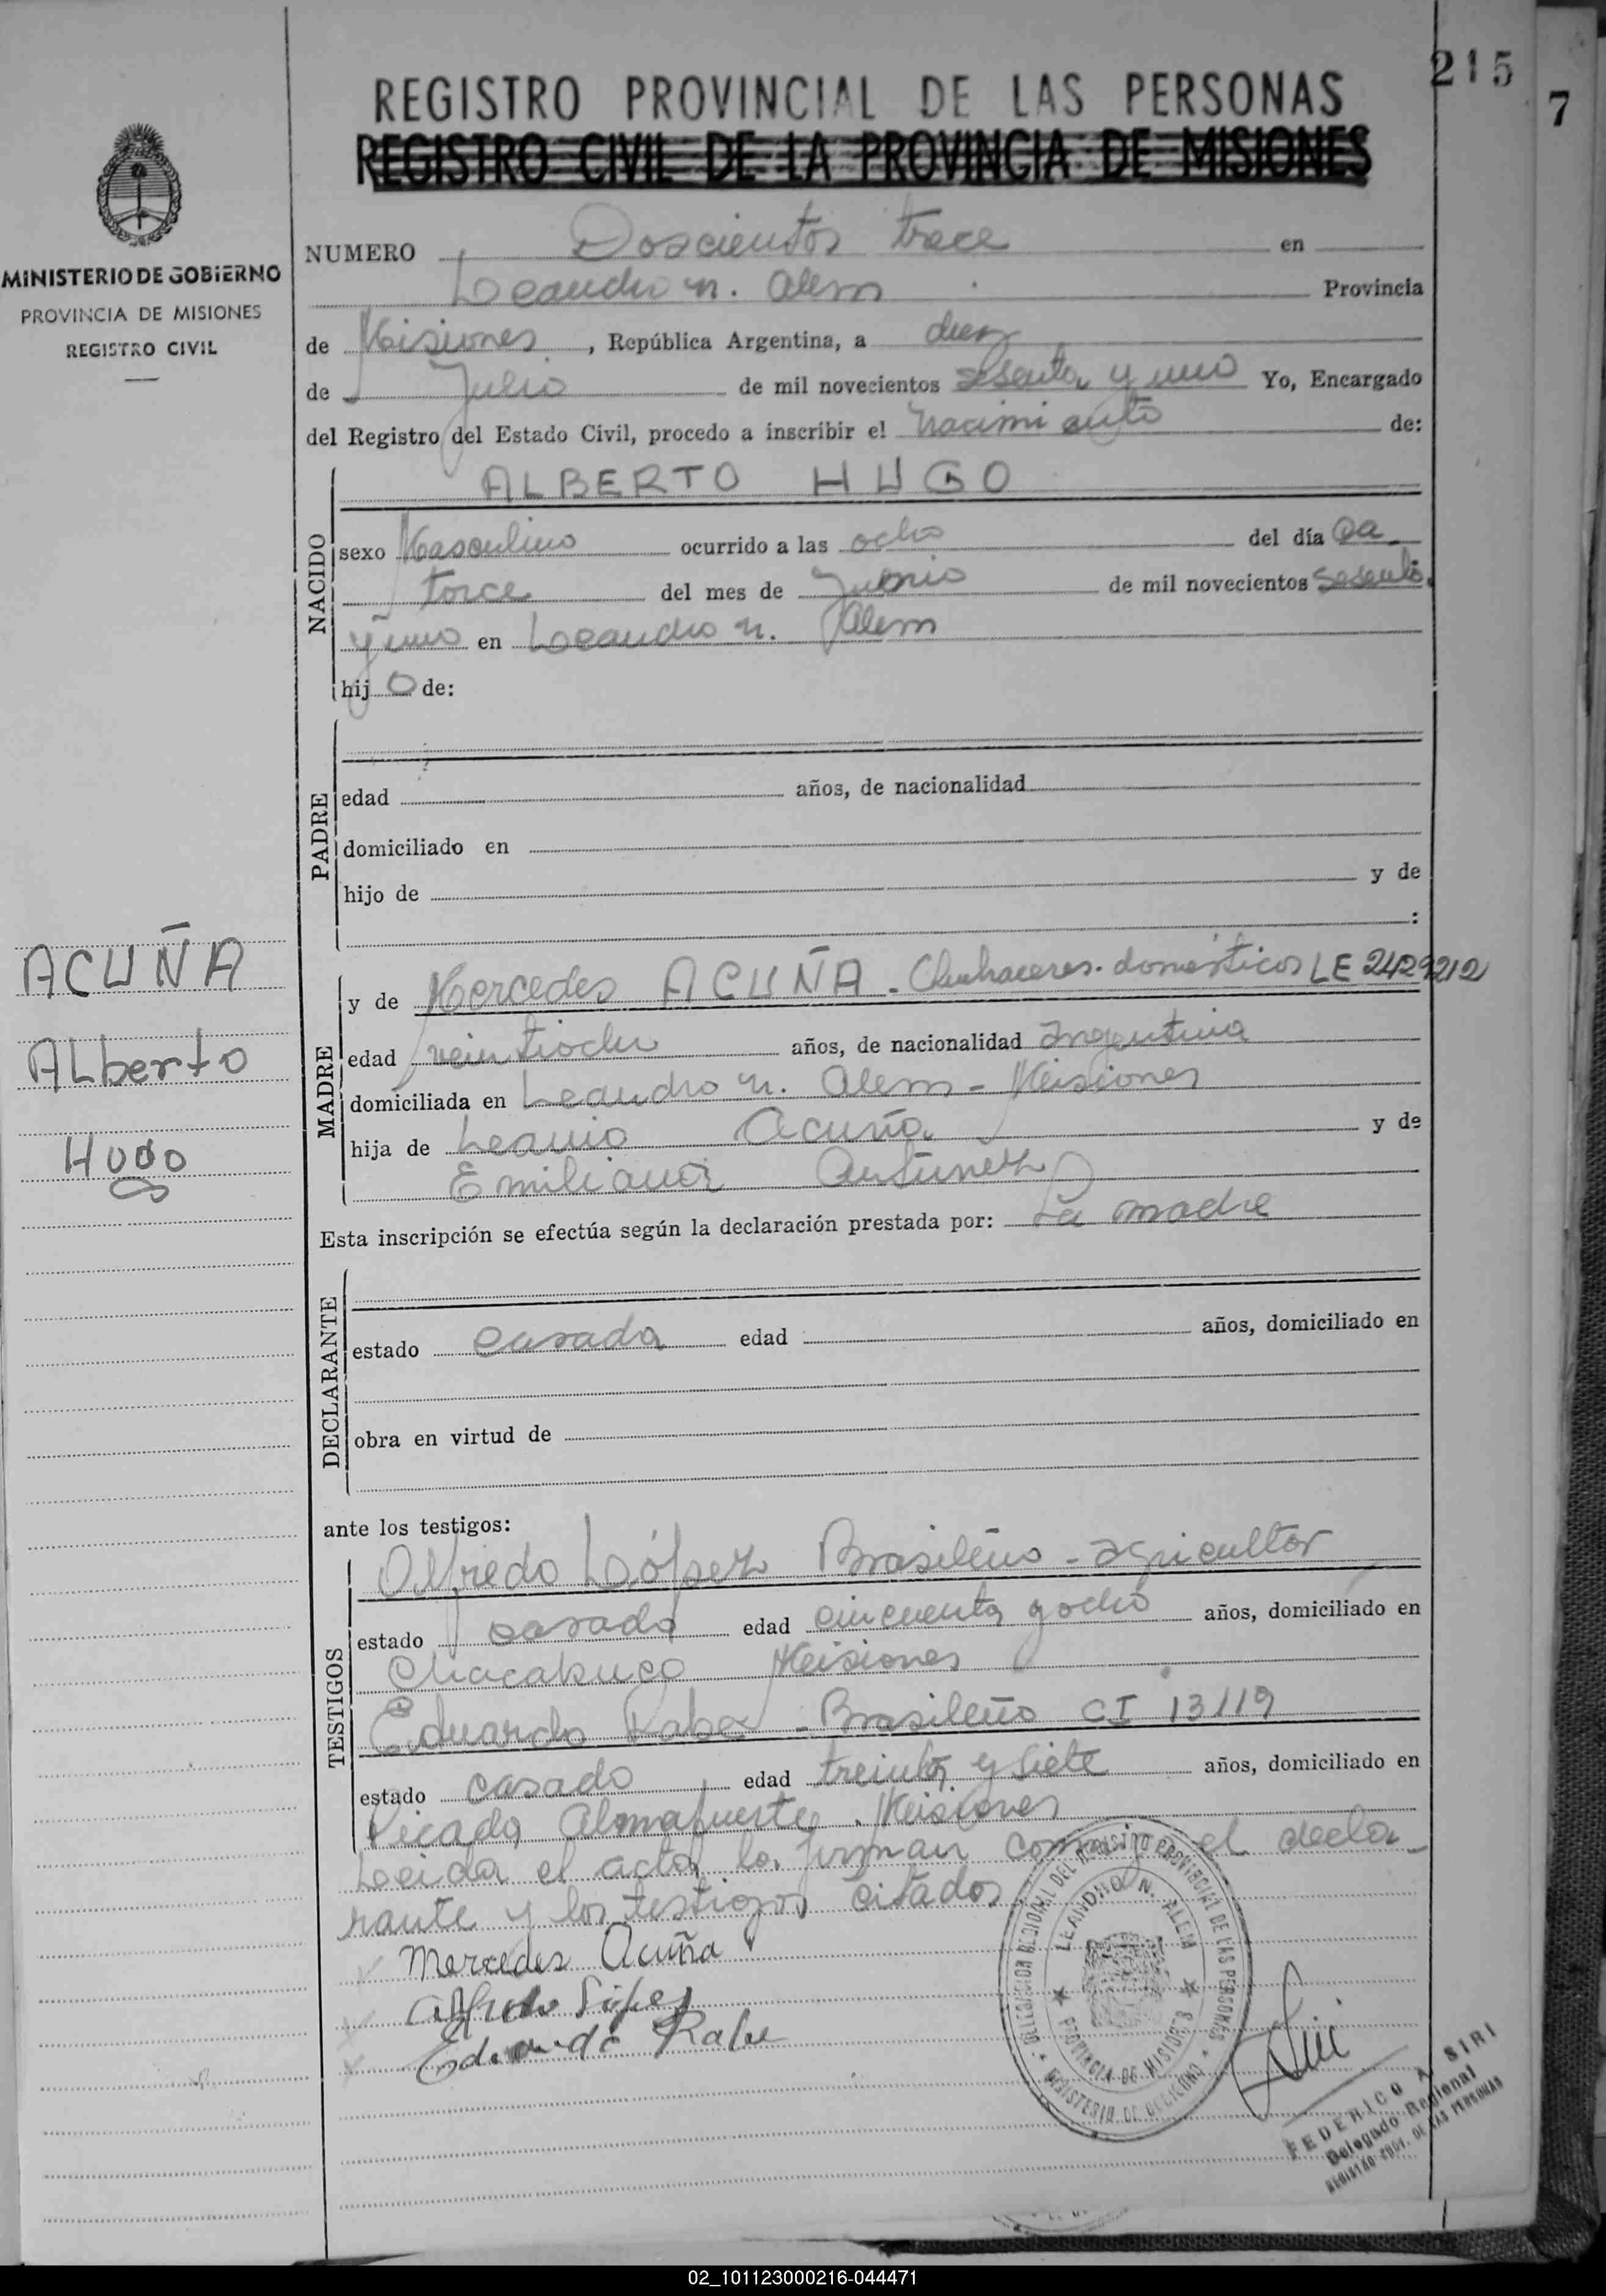 215
7
REGISTRO PROVINCIAL DE LAS PERSONAS
REGISTRO CIVIL DE LA PROVINCIA DE MISIONES
MINISTERIO DE GOBIERNO
PROVINCIA DE MISIONES
REGISTRO CIVIL
NUMERO Doscientos trece en
Leandro N. Alem Provincia
de Misiones, República Argentina, a diez
de Julio de mil novecientos sesenta y uno Yo, Encargado
del Registro del Estado Civil, procedo a inscribir el Nacimiento de:
NACIDO
ALBERTO HUGO
sexo Masculino ocurrido a las ocho del día Ca
torce del mes de Junio de mil novecientos sesenta
y uno en Leandro N. Alem
hijo de:
PADRE
edad años, de nacionalidad
domiciliado en
hijo de y de
:
ACUÑA
Alberto
Hugo
MADRE
y de Mercedes ACUÑA - Quehaceres domésticos LE 2429212
edad veintiocho años, de nacionalidad Argentina
domiciliada en Leandro N. Alem - Misiones
hija de Acuña y de
Emiliana Antunez
Esta inscripción se efectúa según la declaración prestada por: La madre
DECLARANTE
estado casada edad años, domiciliado en
obra en virtud de
ante los testigos:
TESTIGOS
Alfredo López Brasileño - agricultor
estado casado edad cincuenta y ocho años, domiciliado en
Chacabuco Misiones
Eduardo Rabe - Brasileño CI 13119
estado casado edad treinta y siete años, domiciliado en
Picada Almafuerte. Misiones
Leida el acta, la firman conmigo el decla
rante y los testigos citados
Mercedes Acuña
Alfredo López
Eduardo Rabe
DELEGACION REGIONAL DEL REGISTRO PROVINCIAL DE LAS PERSONAS
LEANDRO N. ALEM
PROVINCIA DE MISIONES
MINISTERIO DE GOBIERNO
FEDERICO A. SIRI
Delegado Regional
REGISTRO PROV. DE LAS PERSONAS
02_101123000216-044471